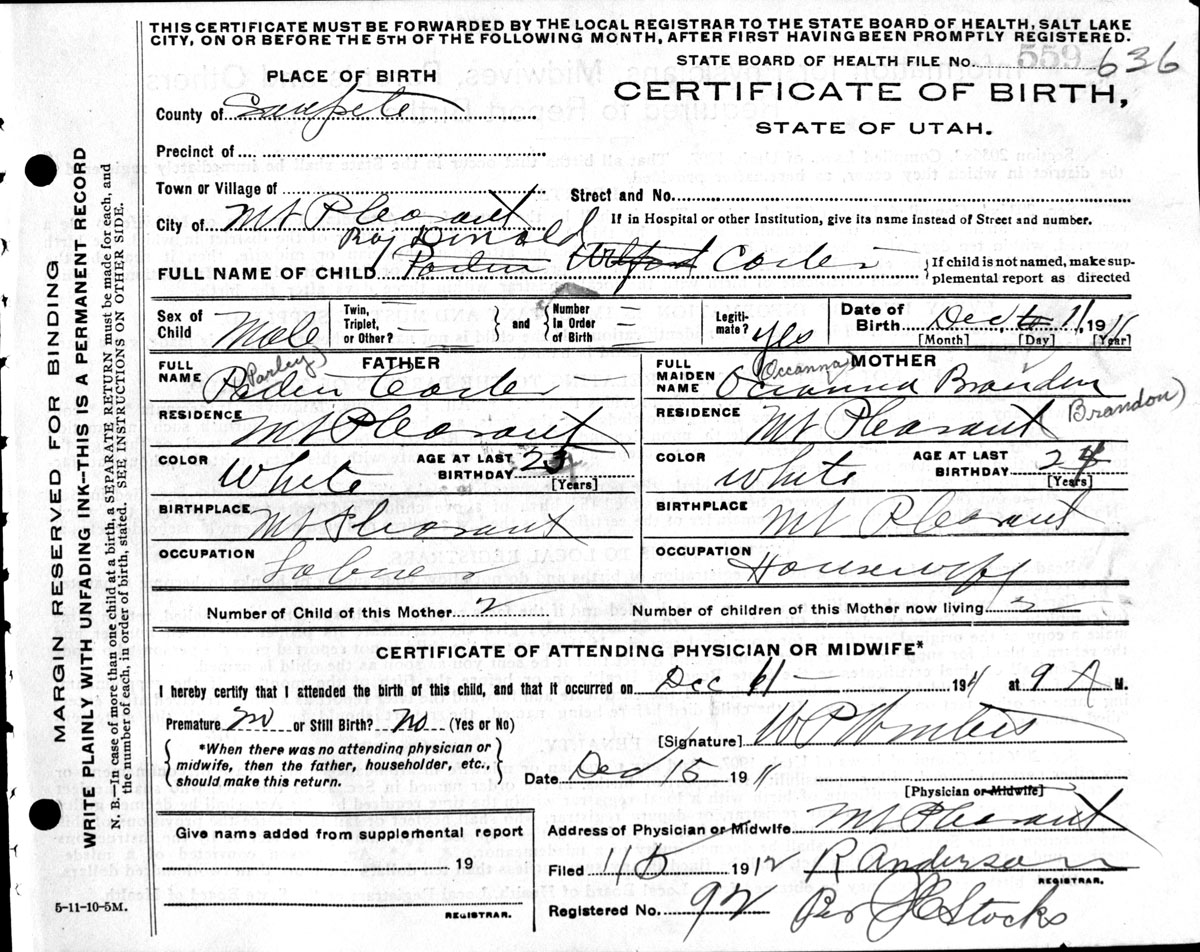 THIS CERTIFICATE MUST BE FORWARDED BY THE LOCAL REGISTRAR TO THE STATE BOARD OF HEALTH, SALT LAKE
CITY, ON OR BEFORE THE 5TH OF THE FOLLOWING MONTH, AFTER FIRST HAVING BEEN PROMPTLY REGISTERED.
STATE BOARD OF HEALTH FILE No. 559 636
PLACE OF BIRTH
CERTIFICATE OF BIRTH,
STATE OF UTAH.
County of Sanpete
Precinct of
Town or Village of
Street and No.
City of Mt Pleasant
If in Hospital or other Institution, give its name instead of Street and number.
Roy Donald
FULL NAME OF CHILD Wilford Carter
{ If child is not named, make supplemental report as directed
Sex of Child Male
Twin, Triplet, or Other? —
} and {
Number In Order of Birth —
Legitimate? Yes
Date of Birth Dec 11 1911
[Month] [Day] [Year]
FATHER
FULL NAME (Parley) Carter
MOTHER
FULL MAIDEN NAME (Occanna) Brandon
(Brandon)
RESIDENCE Mt Pleasant
RESIDENCE Mt Pleasant
COLOR White AGE AT LAST BIRTHDAY
[Years]
COLOR White AGE AT LAST BIRTHDAY
[Years]
BIRTHPLACE Mt Pleasant
BIRTHPLACE Mt Pleasant
OCCUPATION Laborer
OCCUPATION Housewife
Number of Child of this Mother 2 Number of children of this Mother now living 2
CERTIFICATE OF ATTENDING PHYSICIAN OR MIDWIFE*
I hereby certify that I attended the birth of this child, and that it occurred on Dec 11 191 at 9 A M.
Premature no or Still Birth? no (Yes or No)
[Signature] W P Winters
{ *When there was no attending physician or midwife, then the father, householder, etc., should make this return. }
Date Dec 15 1911
[Physician or Midwife]
Give name added from supplemental report
Address of Physician or Midwife Mt Pleasant
19
Filed 1912 R Anderson
REGISTRAR.
Registered No. 92 Per J C Stocks
REGISTRAR.
5-11-10-5M.
MARGIN RESERVED FOR BINDING
WRITE PLAINLY WITH UNFADING INK--THIS IS A PERMANENT RECORD
N. B.--In case of more than one child at a birth, a SEPARATE RETURN must be made for each, and
the number of each, in order of birth, stated. SEE INSTRUCTIONS ON OTHER SIDE.